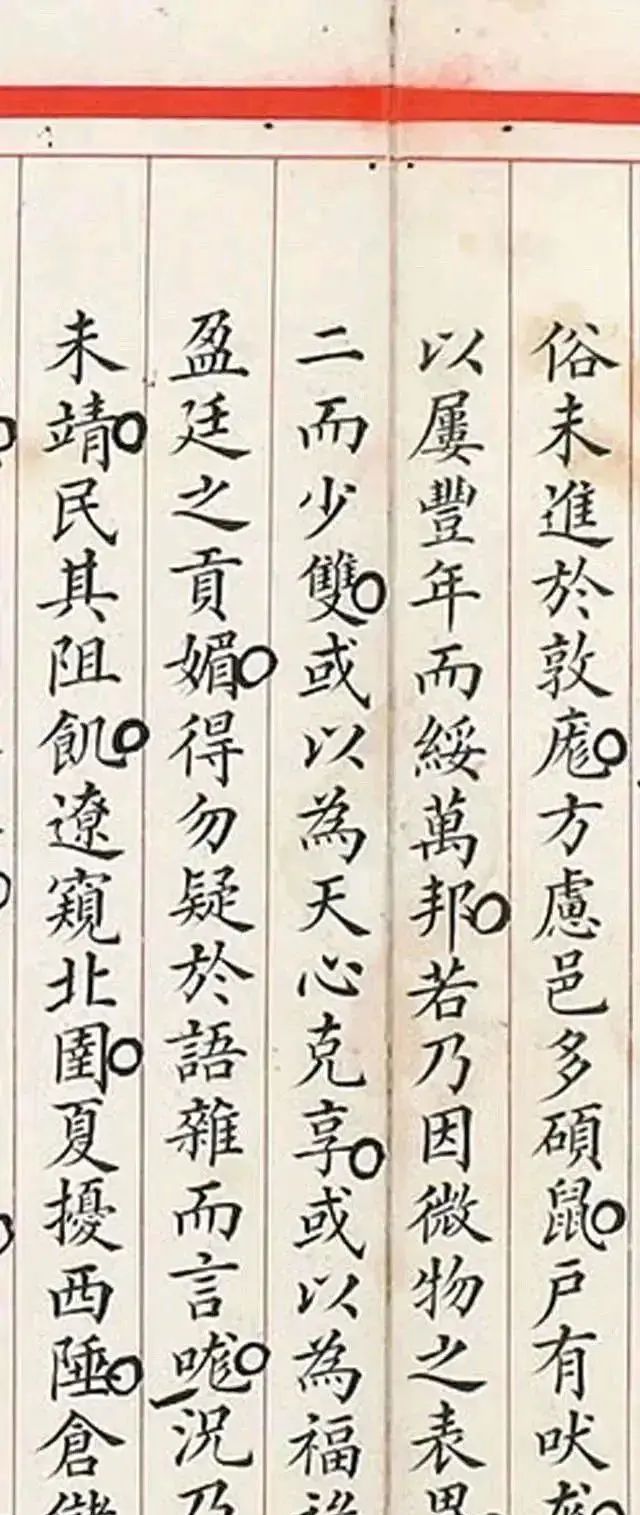 俗未進於敦庬方慮邑多碩鼠戶有吠
以屢豐年而綏萬邦若乃因微物之表
二而少雙或以為天心克享或以為福
盈廷之貢媚得勿疑於語雜而言哤況乃
未靖民其阻飢遼窺北圉夏擾西陲倉儲